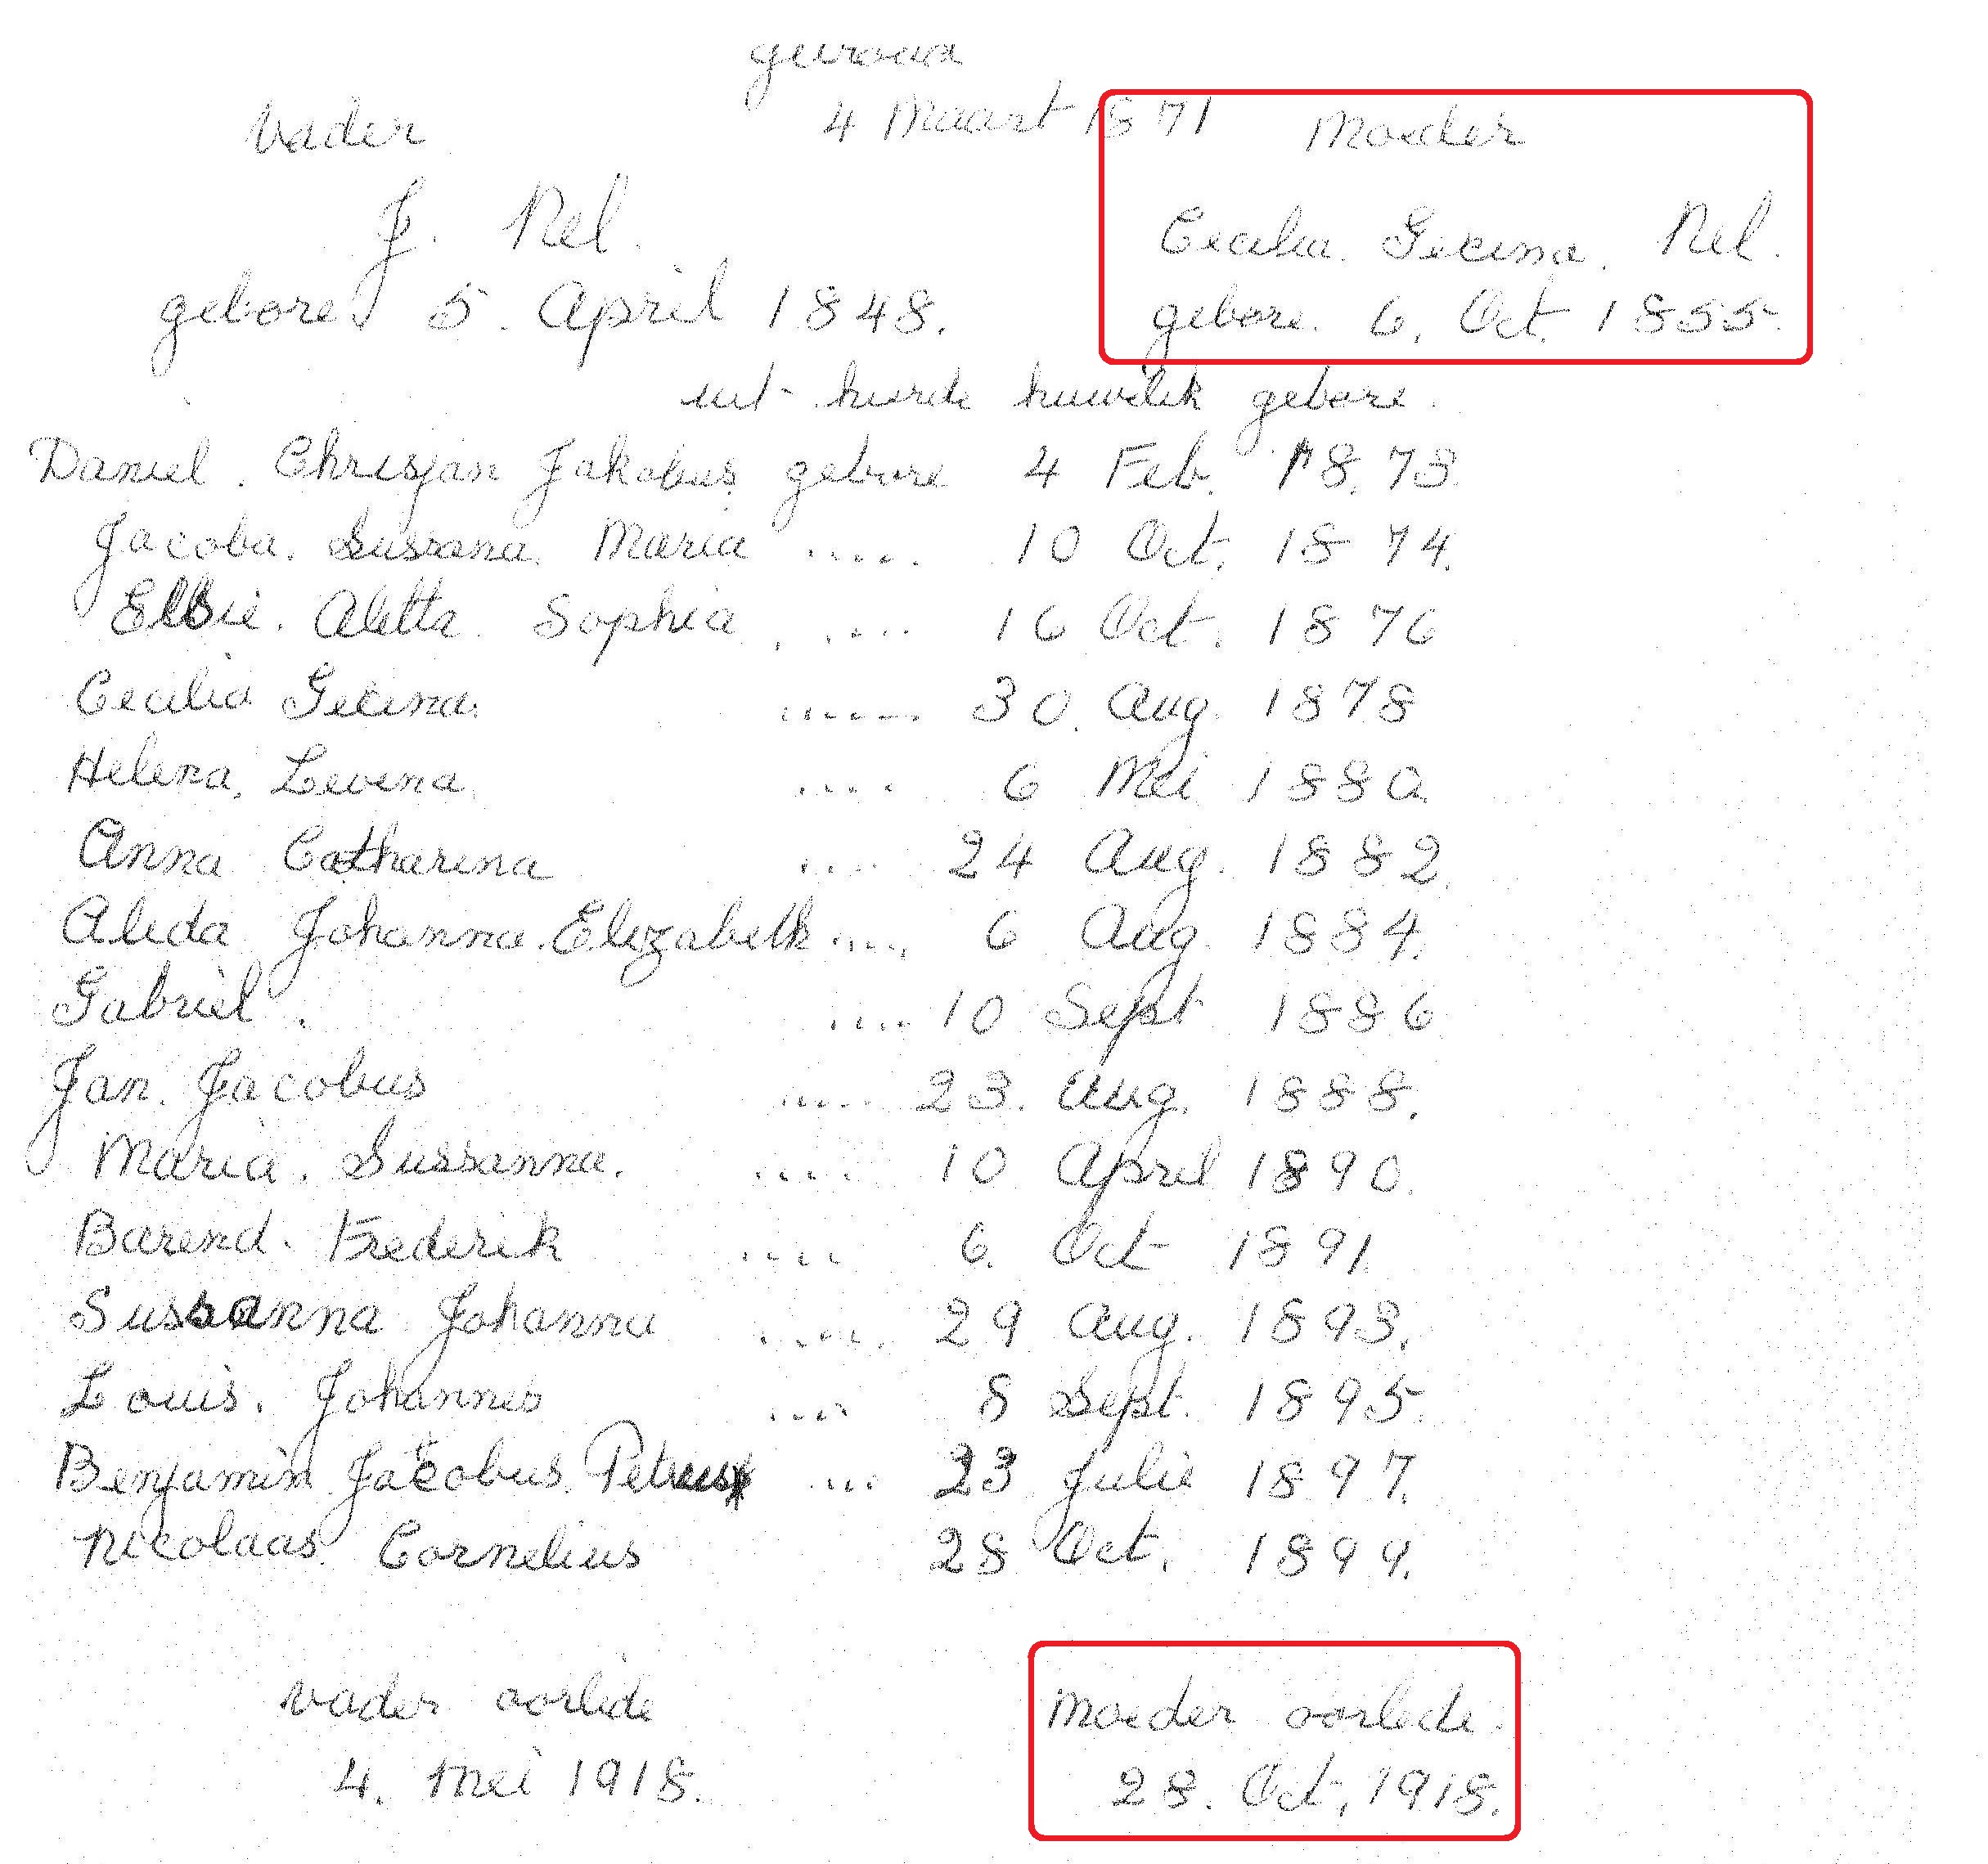 getroud
4 Maart 1871
Vader
Moeder
J. Nel.
Cecilia. Gecina. Nel.
gebore 5. April 1848.
gebore. 6. Oct. 1855.
uit hierde huwelik gebore.
Daniel. Chrisjan Jakobus gebore 4 Feb. 1873.
Jacoba. Sussana. Maria .... 10 Oct. 1874.
Elsie. Aletta. Sophia ..... 16 Oct. 1876
Cecilia Gecina ...... 30. Aug. 1878
Helena. Levina .... 6 Mei 1880
Anna Catharina .... 24 Aug. 1882.
Aleda Johanna. Elizabeth .... 6 Aug. 1884.
Gabriel. .... 10 Sept 1886
Jan. Jacobus ..... 23. Aug. 1888.
Maria. Sussanna. .... 10 April 1890.
Barend. Frederik .... 6. Oct 1891.
Sussanna Johanna ..... 29 Aug. 1893.
Louis. Johannes .... 8 Sept. 1895.
Benjamin Jacobus Petrus ... 23 Julie 1897.
Nicolaas Cornelius 28 Oct. 1899.
vader oorlede
Moeder oorlede.
4. Mei 1918.
28. Oct, 1918.